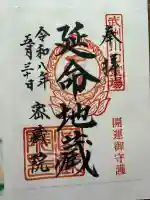 奉拝
延命地蔵
密蔵院
令和八年
五月三十日
開運御守護